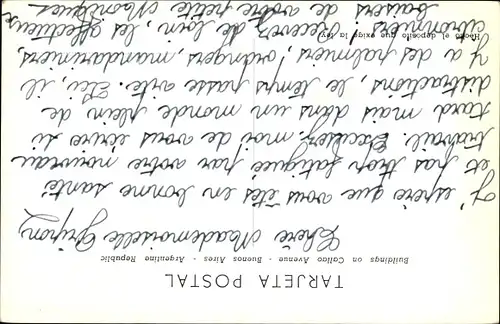 TARJETA POSTAL
Buildings on Callao Avenue - Buenos Aires - Argentine Republic
Chère Mademoiselle
J'espère que vous êtes en bonne santé
et pas trop fatiguée par votre nouveau
travail. Excusez moi de vous écrire si
tard mais dans un monde plein de
distractions, le temps passe vite. Ici, il
y a des palmiers, orangers, mandariniers,
citronniers. Recevez de loin, les affectueux
baisers de votre petite Monique
Hecho el depósito que exige la ley